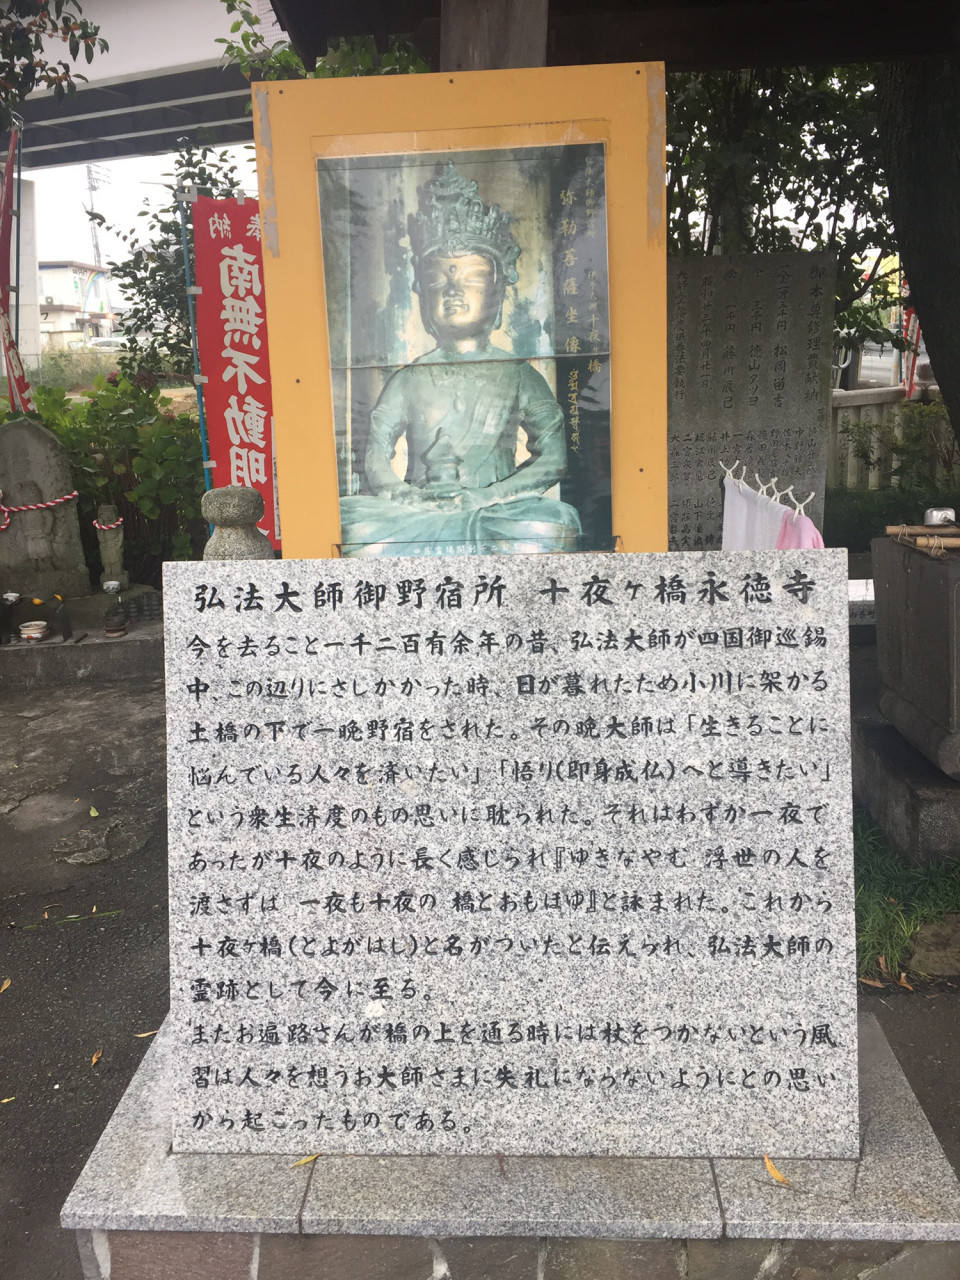 奉納
南無不動明
弥勒菩薩坐像
御本尊修理費献納
弘法大師御野宿所 十夜ヶ橋永徳寺
今を去ること一千二百有余年の昔、弘法大師が四国御巡錫
中、この辺りにさしかかった時、日が暮れたため小川に架かる
土橋の下で一晩野宿をされた。その晩大師は「生きることに
悩んでいる人々を済いたい」「悟り(即身成仏)へと導きたい」
という衆生済度のもの思いに耽られた。それはわずか一夜で
あったが十夜のように長く感じられ『ゆきなやむ 浮世の人を
渡さずは 一夜も十夜の 橋とおもほゆ』と詠まれた。これから
十夜ヶ橋(とよがはし)と名がついたと伝えられ、弘法大師の
霊跡として今に至る。
またお遍路さんが橋の上を通る時には杖をつかないという風
習は人々を想うお大師さまに失礼にならないようにとの思い
から起こったものである。